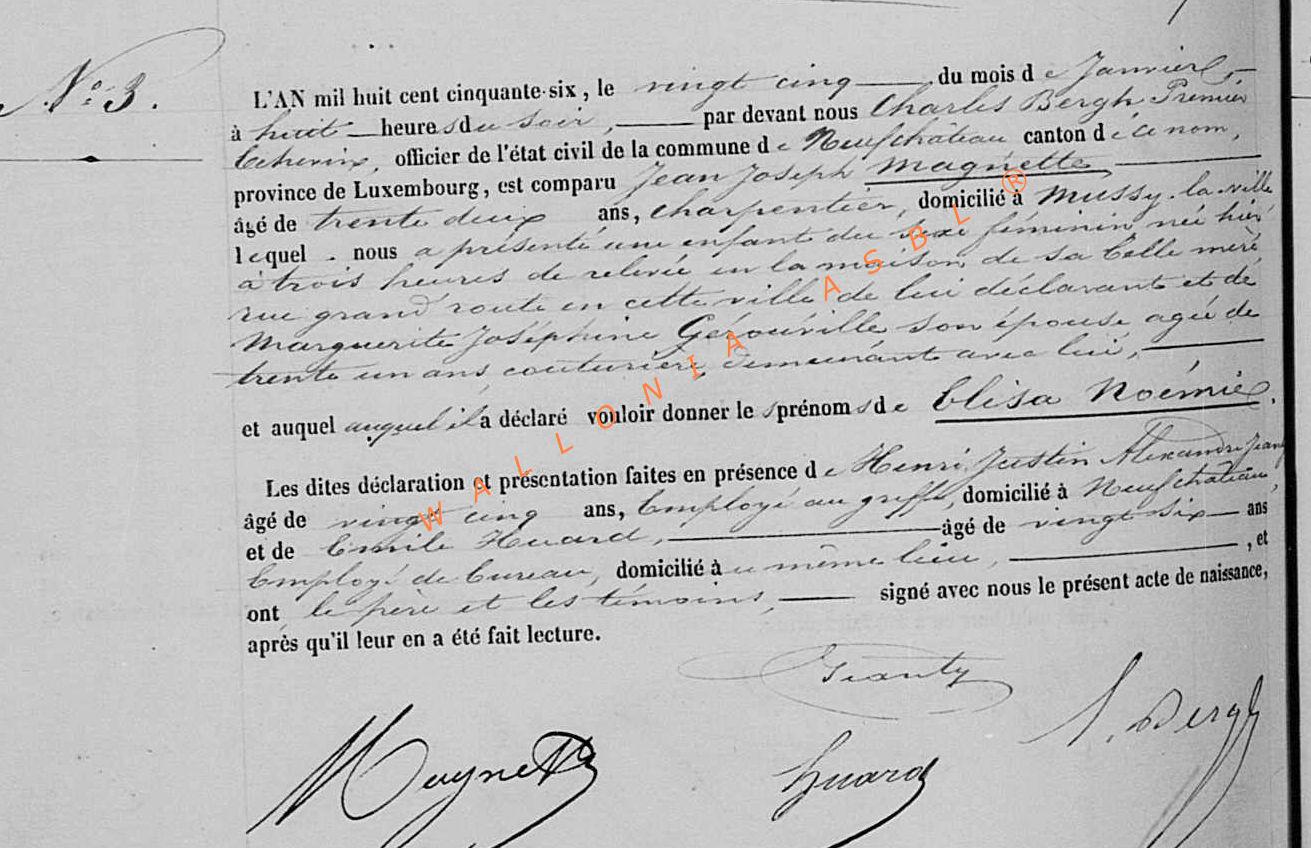 N° 3.
L'AN mil huit cent cinquante-six, le vingt cinq du mois de Janvier,
à huit heures du soir, par devant nous Charles Bergh Premier
Echevin, officier de l'état civil de la commune de Neufchâteau canton de ce nom,
province de Luxembourg, est comparu Jean Joseph Magnette
âgé de trente deux ans, charpentier, domicilié à Mussy-la-ville
lequel nous a présenté une enfant du sexe féminin née hier
à trois heures de relevée en la maison de sa belle mère
rue grand'route en cette ville de lui déclarant et de
Marguerite Joséphine Gérouville son épouse agée de
trente un ans couturière, demeurant avec lui,
et auquel auquel il a déclaré vouloir donner les prénoms de Elisa Noémie.
Les dites déclaration et présentation faites en présence de Henri Justin Alexandre
âgé de vingt cinq ans, Employé au greffe, domicilié à Neufchâteau,
et de Emile Huard, âgé de vingt six ans
Employé de bureau, domicilié au même lieu, , et
ont le père et les témoins, signé avec nous le présent acte de naissance,
après qu'il leur en a été fait lecture.
Magnette
Huard
Bergh
WALLONIA ASBL ®